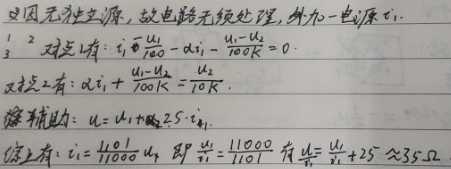 又因无独立源，故电路无须处理，外加一电源 i₁.
1 2
3 对点1有: i₁ - u₁/100 - αi₁ - (u₁-u₂)/100K = 0.
对点2有: αi₁ + (u₁-u₂)/100K = u₂/10K.
辅助: u = u₁ + 25·i₁.
综上有: i₁ = 1101/11000 u₁ 即 u₁/i₁ = 11000/1101 有 u/i₁ = u₁/i₁ + 25 ≈ 35Ω